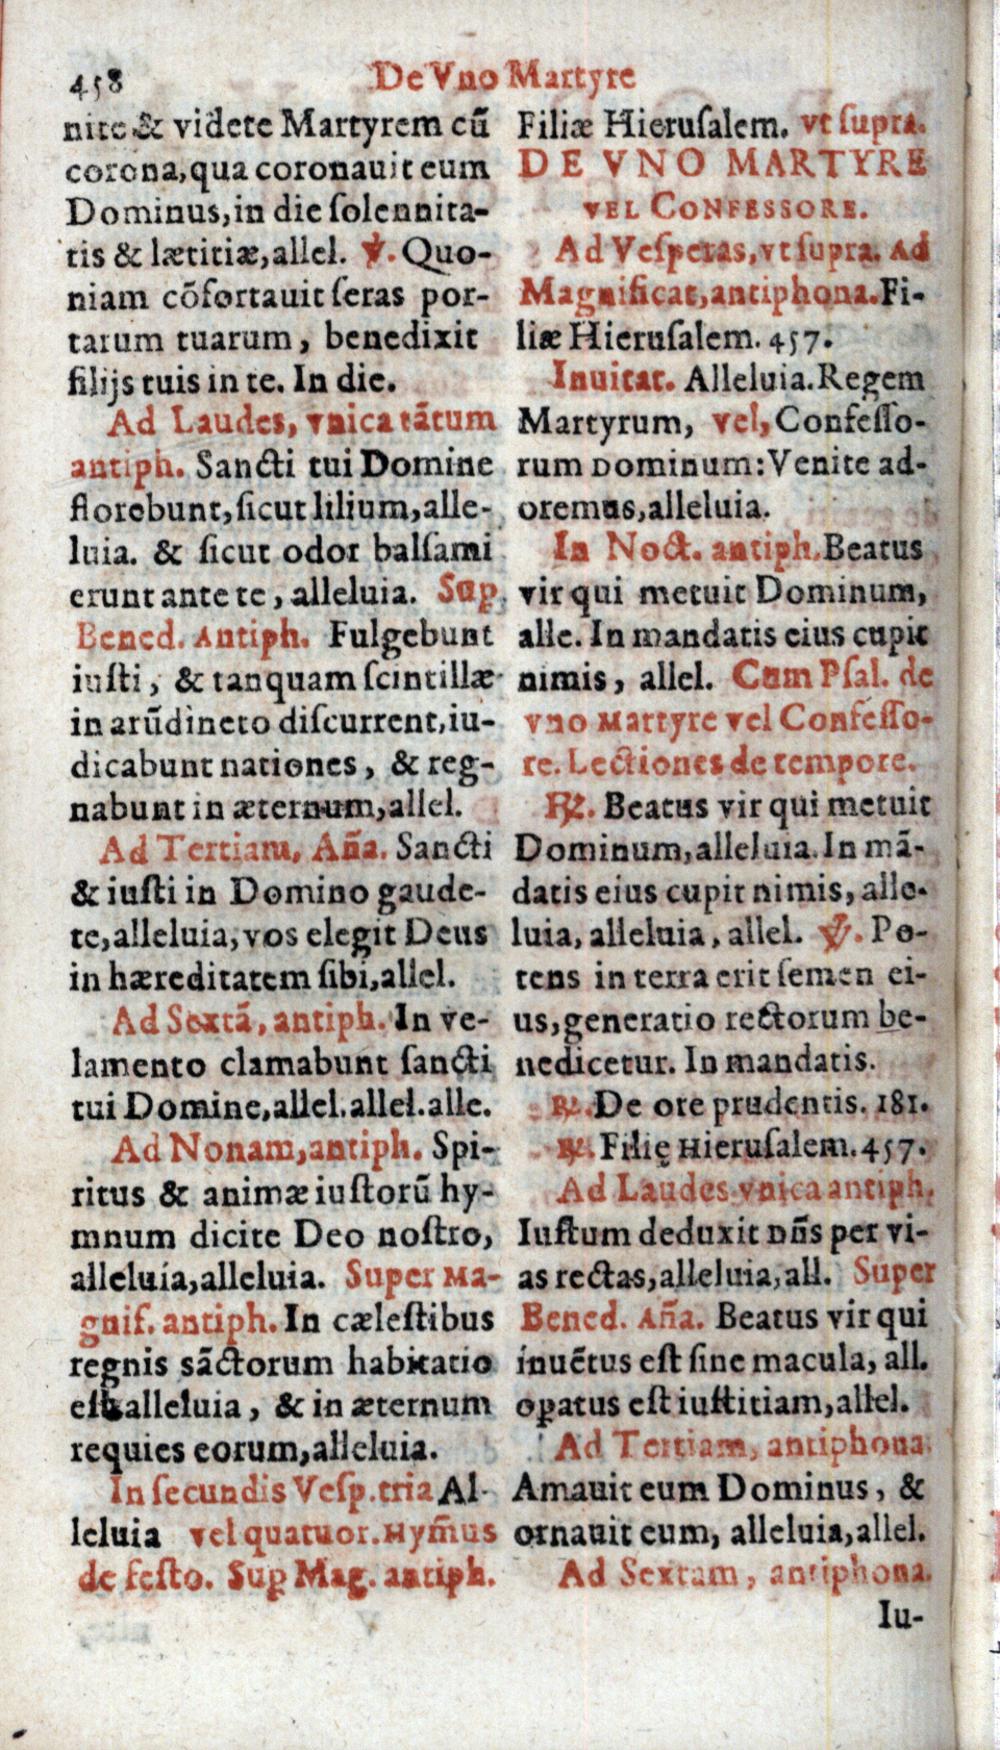 458 De Vno Martyre
nite & videte Martyrem cũ
corona, qua coronauit eum
Dominus, in die ſolennita-
tis & lætitiæ, allel. ℣. Quo-
niam cõfortauit ſeras por-
tarum tuarum, benedixit
filijs tuis in te. In die.
Ad Laudes, vnica tãtum
antiph. Sancti tui Domine
florebunt, ſicut lilium, alle-
luia. & ſicut odor balſami
erunt ante te, alleluia. Sup.
Bened. Antiph. Fulgebunt
iuſti, & tanquam ſcintillæ
in arũdineto diſcurrent, iu-
dicabunt nationes, & reg-
nabunt in æternum, allel.
Ad Tertiam, Aña. Sancti
& iuſti in Domino gaude-
te, alleluia, vos elegit Deus
in hæreditatem ſibi, allel.
Ad Sextã, antiph. In ve-
lamento clamabunt ſancti
tui Domine, allel. allel. alle.
Ad Nonam, antiph. Spi-
ritus & animæ iuſtorũ hy-
mnum dicite Deo noſtro,
alleluia, alleluia. Super Ma-
gnif. antiph. In cæleſtibus
regnis sãctorum habitatio
eſt alleluia, & in æternum
requies eorum, alleluia.
In ſecundis Veſp. tria Al-
leluia vel quatuor. Hym̃us
de feſto. Sup Mag. antiph.
Filiæ Hieruſalem. vt ſupra.
DE VNO MARTYRE
VEL CONFESSORE.
Ad Veſperas, vt ſupra. Ad
Magnificat, antiphona. Fi-
liæ Hieruſalem. 457.
Inuitat. Alleluia. Regem
Martyrum, vel, Confeſſo-
rum Dominum: Venite ad-
oremus, alleluia.
In Noct. antiph. Beatus
vir qui metuit Dominum,
alle. In mandatis eius cupit
nimis, allel. Cum Pſal. de
vno Martyre vel Confeſſo-
re. Lectiones de tempore.
℟. Beatus vir qui metuit
Dominum, alleluia. In mã-
datis eius cupit nimis, alle-
luia, alleluia, allel. ℣. Po-
tens in terra erit ſemen ei-
us, generatio rectorum be-
nedicetur. In mandatis.
℟. De ore prudentis. 181.
℟. Filię Hieruſalem. 457.
Ad Laudes vnica antiph.
Iuſtum deduxit Dñs per vi-
as rectas, alleluia, all. Super
Bened. Aña. Beatus vir qui
inuẽtus eſt ſine macula, all.
opatus eſt iuſtitiam, allel.
Ad Tertiam, antiphona.
Amauit eum Dominus, &
ornauit eum, alleluia, allel.
Ad Sextam, antiphona.
Iu-